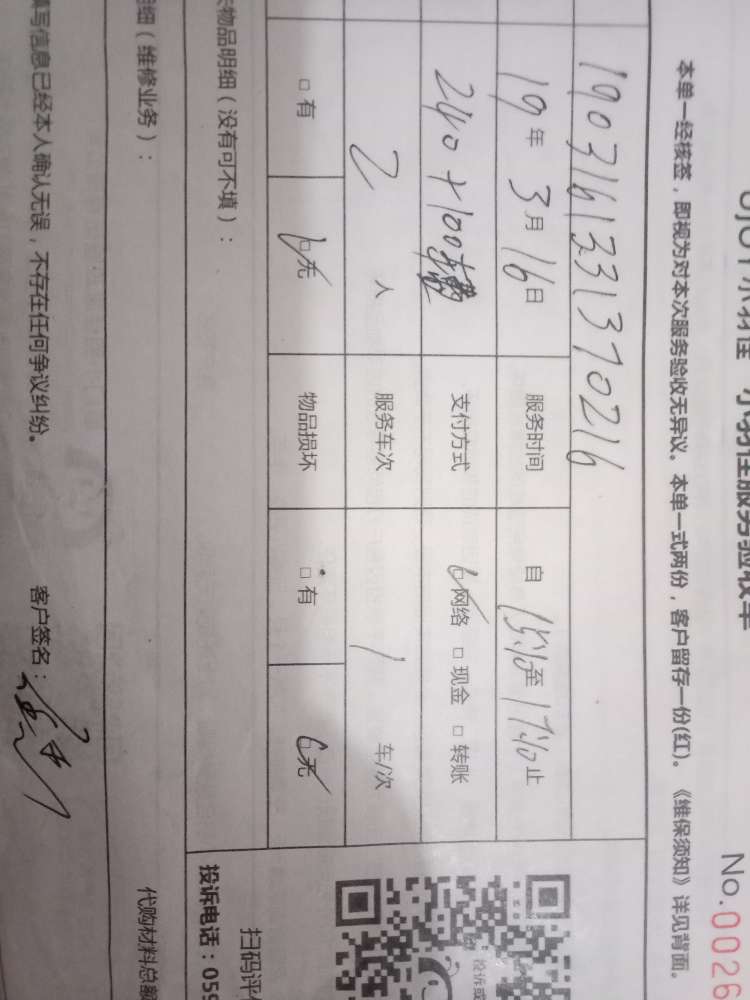 小羽佳服务验收单
No.0026
本单一经核签，即视为对本次服务验收无异议。本单一式两份，客户留存一份(红)。《维保须知》详见背面。
19031613313370216
19年3月16日 服务时间 自 15:10至17:10止
240+100 支付方式 ☑网络 □现金 □转账
2 人 服务车次 1 车/次
□有 ☑无 物品损坏 □有 ☑无
物品明细（没有可不填）：
细（维修业务）：
投诉电话：059
代购材料总额
填写信息已经本人确认无误，不存在任何争议纠纷。 客户签名：